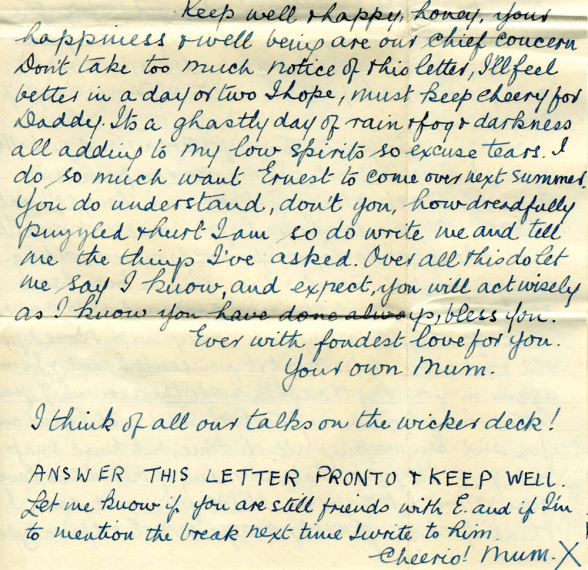 Keep well & happy, honey, your
happiness & well being are our chief concern
Don't take too much notice of this letter, I'll feel
better in a day or two I hope, must keep cheery for
Daddy. Its a ghastly day of rain & fog & darkness
all adding to my low spirits so excuse tears. I
do so much want Ernest to come over next summer.
You do understand, don't you, how dreadfully
puzzled & hurt I am so do write me and tell
me the things I've asked. Over all this do let
me say I know, and expect, you will act wisely
as I know you have done always, bless you.
Ever with fondest love for you.
Your own Mum.
I think of all our talks on the wicker deck!
ANSWER THIS LETTER PRONTO & KEEP WELL.
Let me know if you are still friends with E. and if I'm
to mention the break next time I write to him.
Cheerio! Mum. X